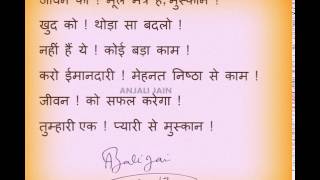 जीवन का ! मूल मंत्र है, मुस्कान !
खुद को ! थोड़ा सा बदलो !
नहीं हैं ये ! कोई बड़ा काम !
करो ईमानदारी ! मेहनत निष्ठा से काम !
ANJALI JAIN
जीवन ! को सफल करेगा !
तुम्हारी एक ! प्यारी से मुस्कान !
Anjali Jain